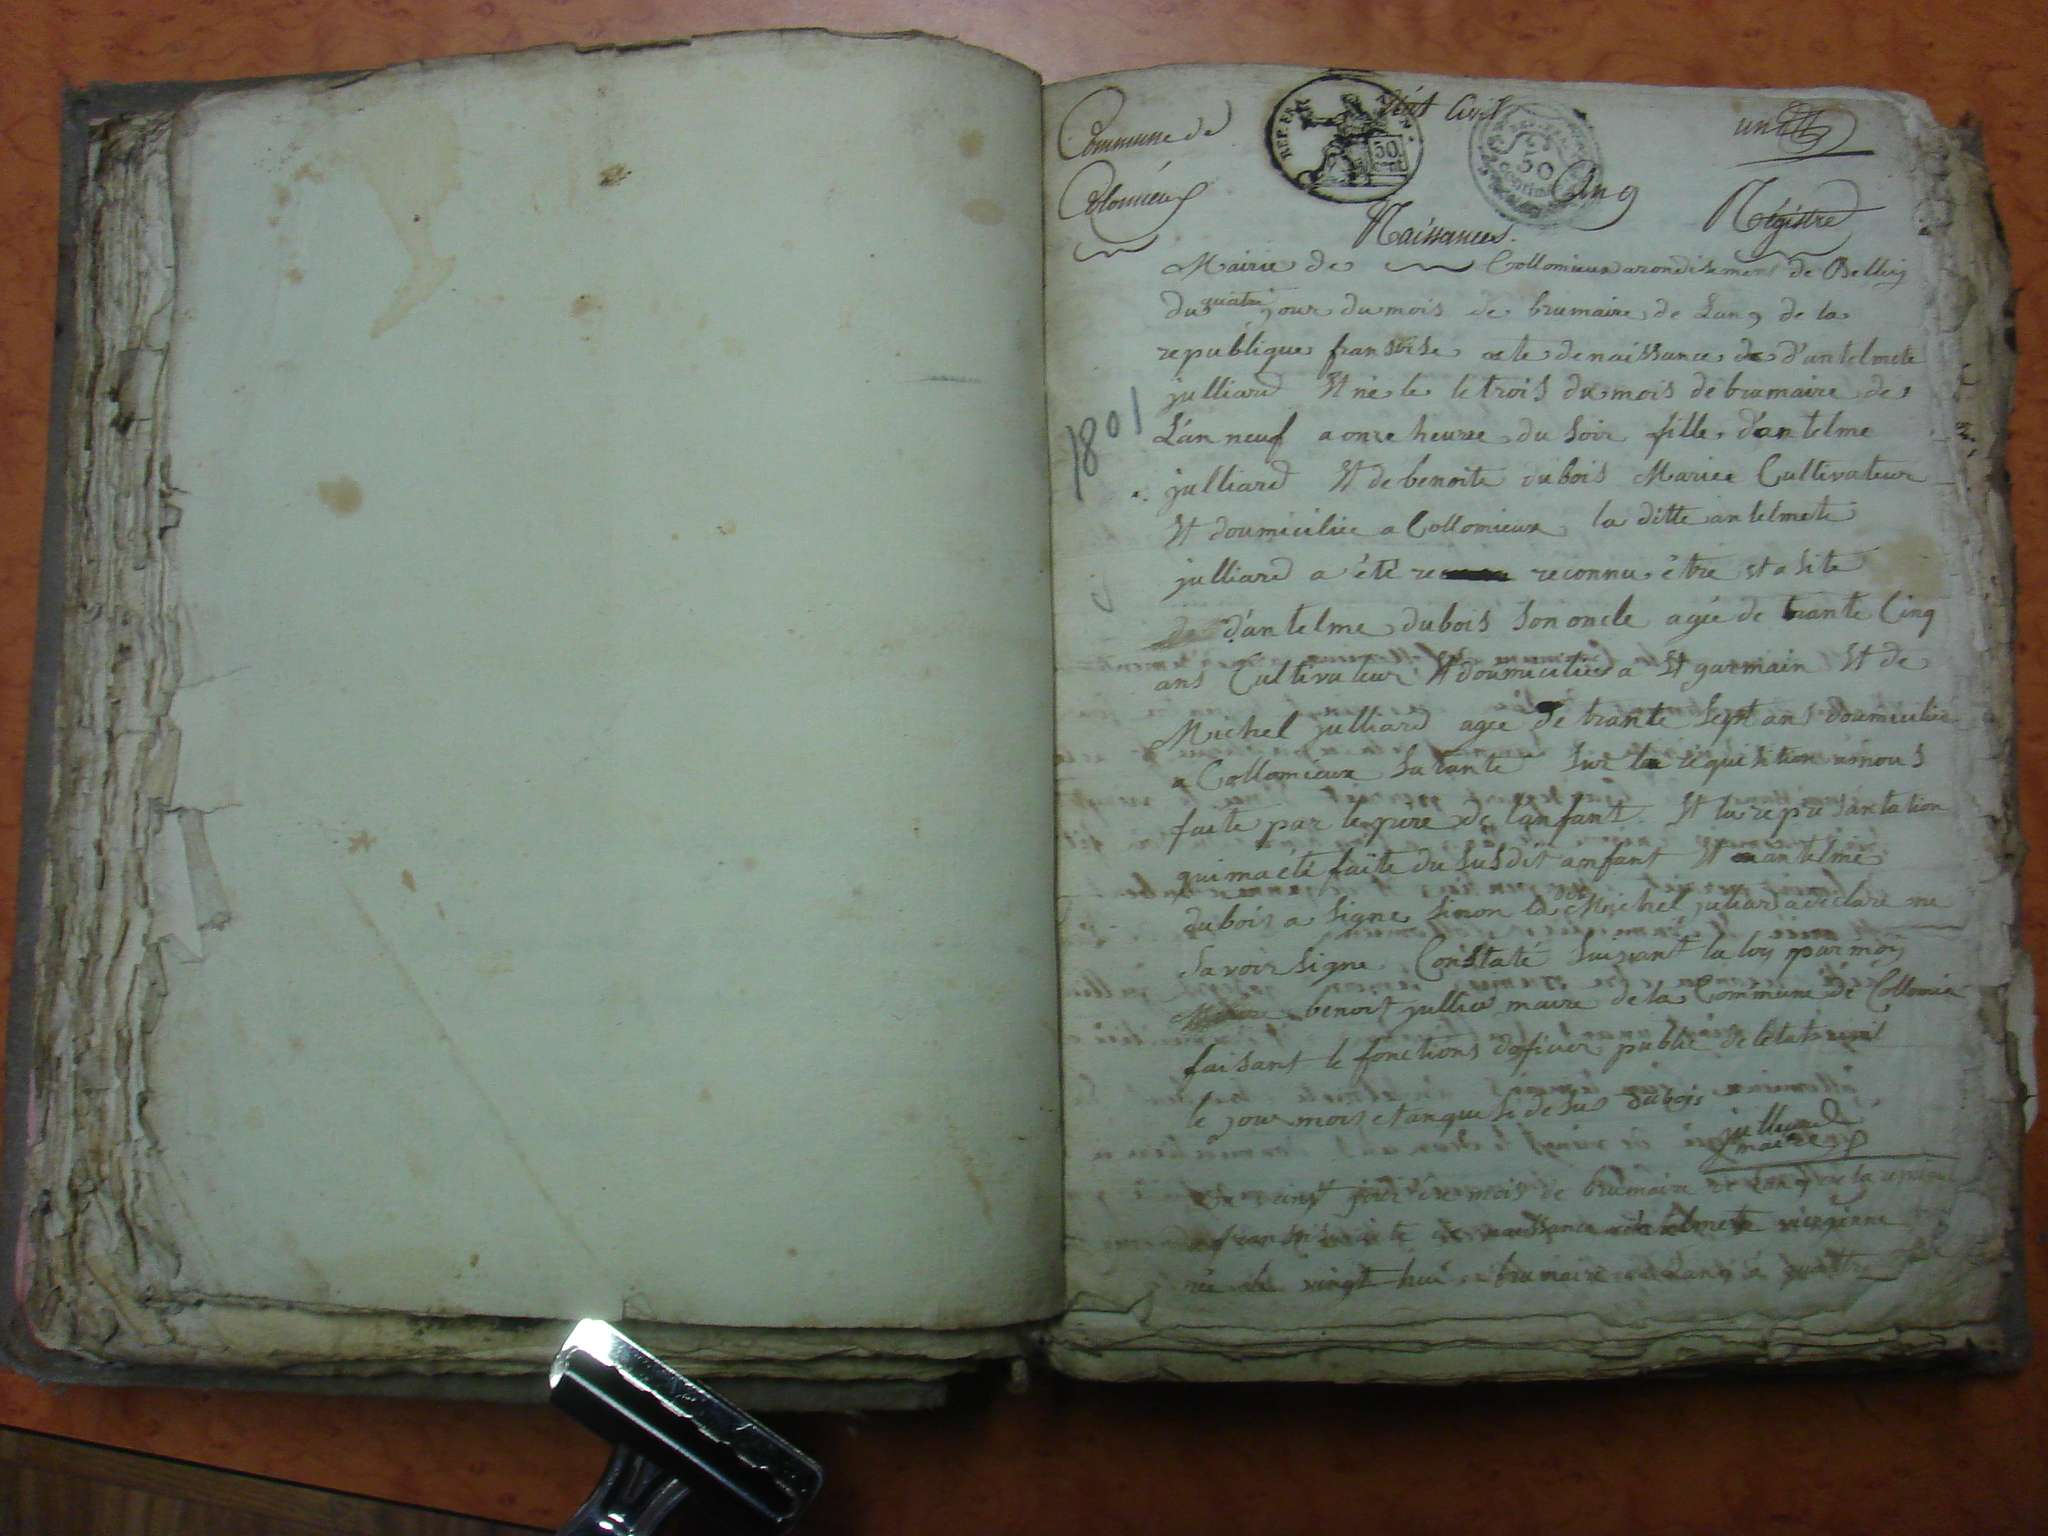 Commune de
Colomieux
REP. FRA
50
cent
état Civil
50
centime
un
An 9
Naissances
Régistre
Mairie de Collomieux arondisement de Belley
du quatre jour du mois de brumaire de Lan 9 de la
republique fransoise acte de naissance de d'antelmete
julliard Et ne le le trois du mois de brumaire de
L'an neuf a onze heurre du soir fille d'antelme
julliard Et de benoite dubois Mariee Cultivateur
Et doumiciliee a Collomieux la ditte antelmete
julliard a été reconnu être
de d'antelme dubois son oncle agée de trante Cinq
ans Cultivateur Et doumicilié a St garmain Et de
Michel julliard agee de trante sept ans doumicilie
a Collomieux sa tante sur la réquisition a nous
faite par le pere de l'anfant Et la represantation
qui ma été faite du susdit anfant Et antelme
dubois a signe sinon le Michel juliard a déclaré ne
savoir signe Constaté suivant la loy par moy
benoit jullier maire de la Commune de Collomie
faisant le fonctions doficier public de letat civil
le jour mois et an que si desus dubois
julliard
maire
Du jour du mois de brumaire de lan 9 de la
fransoise acte de naissance antelmete
née le vingt hui brumaire de lan 9 a quattre
1801